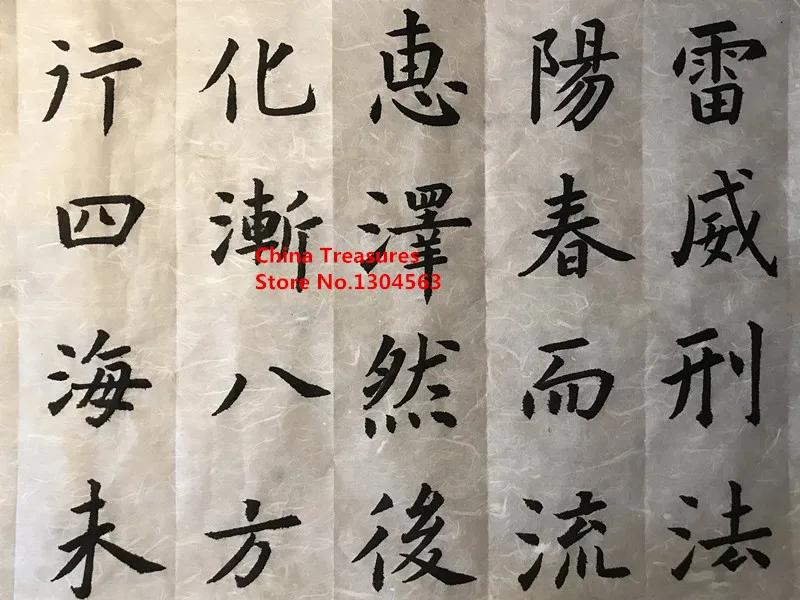 雷威刑法
陽春而流
恵澤然後
化漸八方
行四海未
China Treasures
Store No.1304563